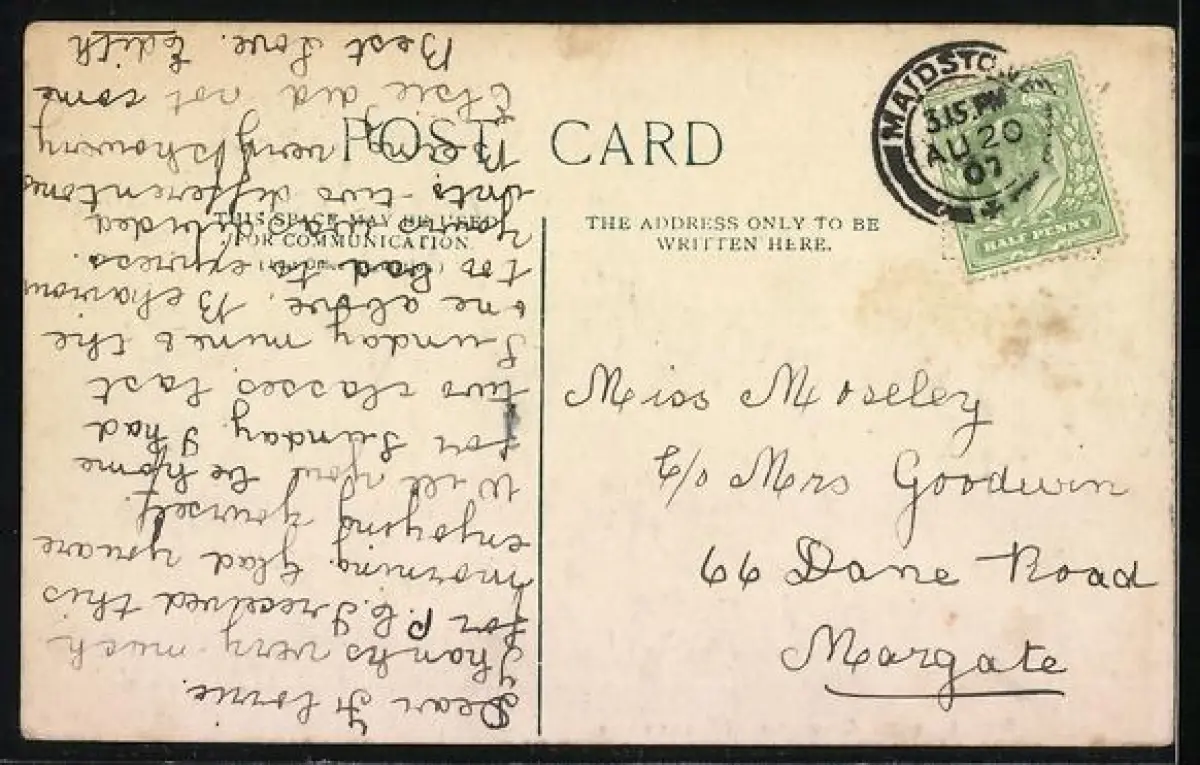 POST CARD
THIS SPACE MAY BE USED
FOR COMMUNICATION
THE ADDRESS ONLY TO BE
WRITTEN HERE.
MAIDSTONE
3.15.PM
AU 20
07
HALF PENNY
Miss Moseley
C/o Mrs Goodwin
66 Dane Road
Margate
Dear Florrie.
Thanks very much
for P.C. I received this
morning. Glad you are
enjoying yourself.
Will you be home
for Sunday. I had
two classes last
Sunday mine & the
one above. Behaviour
too bad to express.
Yours was divided
into two different ones
Being very showery
Elsie did not come
Best Love. Edith